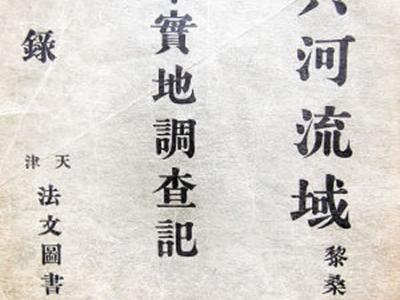 河流域
黎桑
實地調查記
錄
天津
法文圖書